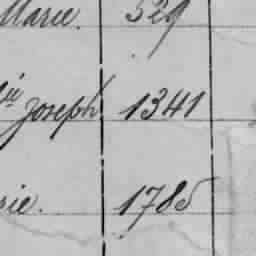 Marie. 529
Joseph 1341
rie. 1785